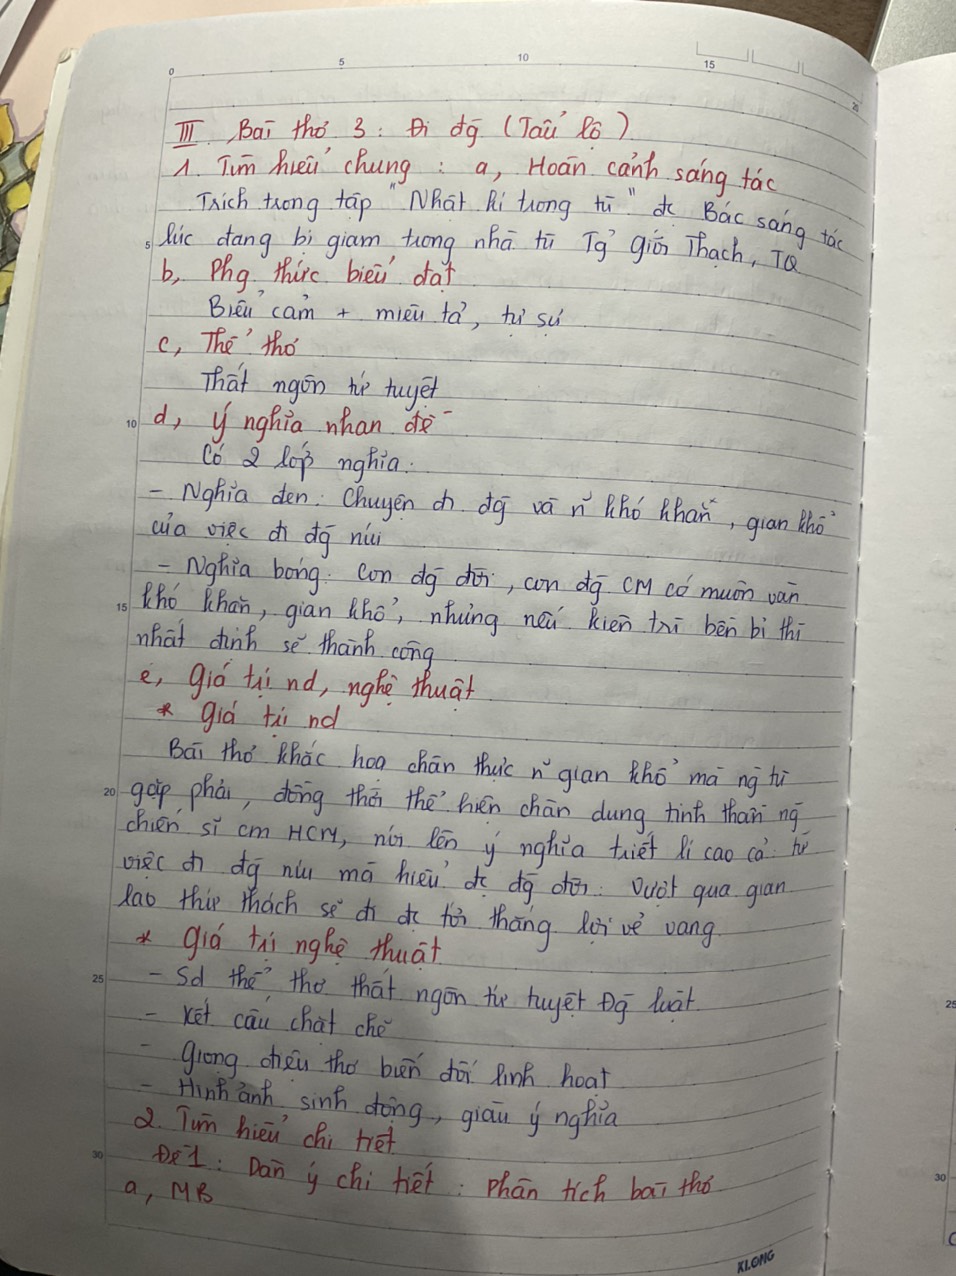 0 5 10 15 20
III. Bài thơ 3: Đi đg (Tẩu lộ)
1. Tìm hiểu chung: a, Hoàn cảnh sáng tác
Trích trong tập "Nhật kí trong tù" đc Bác sáng tác
5 lúc đang bị giam trong nhà tù Tg giới Thạch, TQ
b, Phg thức biểu đạt
Biểu cảm + miêu tả, tự sự
c, Thể thơ
Thất ngôn tứ tuyệt
10 d, ý nghĩa nhan đề
Có 2 lớp nghĩa:
- Nghĩa đen: Chuyện đi đg và n~ khó khăn, gian khổ
của việc đi đg núi
- Nghĩa bóng: Con đg đời, con đg CM có muôn vàn
15 khó khăn, gian khổ, nhưng nếu kiên trì bền bỉ thì
nhất định sẽ thành công
e, giá trị nd, nghệ thuật
* giá trị nd
Bài thơ khắc hoạ chân thực n~ gian khổ mà ng tù
20 gặp phải, đồng thời thể hiện chân dung tinh thần ng
chiến sĩ cm HCM, nói lên ý nghĩa triết lí cao cả: từ
việc đi đg núi mà hiểu đc đg đời: Vượt qua gian
lao thử thách sẽ đi đc tới thắng lợi vẻ vang
* giá trị nghệ thuật
25 - Sd thể thơ thất ngôn tứ tuyệt Đg luật
- Kết cấu chặt chẽ
- giọng điệu thơ biến đổi linh hoạt
- Hình ảnh sinh động, giàu ý nghĩa
2. Tìm hiểu chi tiết
30 Đề 1: Dàn ý chi tiết: Phân tích bài thơ
a, MB
KLONG
25
30